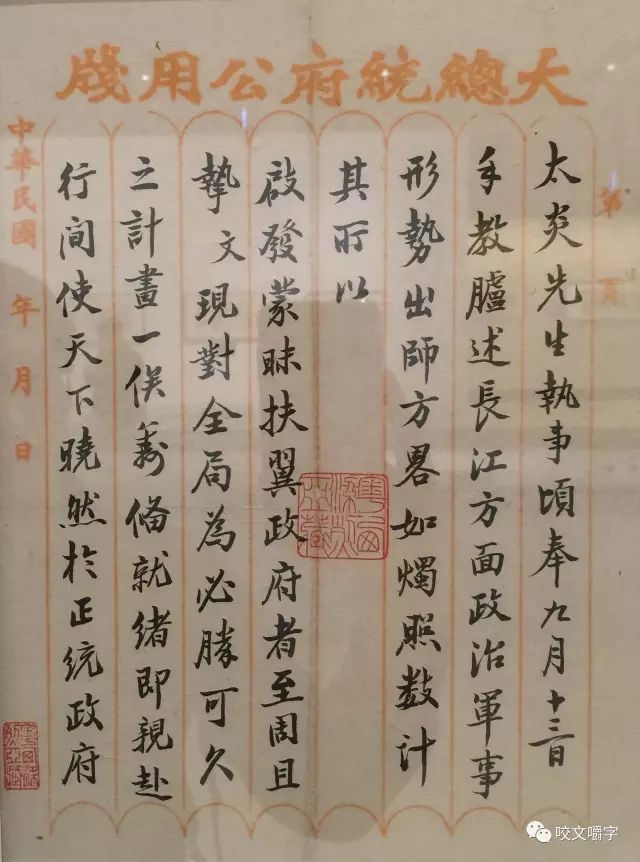 大總統府公用牋
第 頁
太炎先生執事頃奉九月十三日
手教臚述長江方面政治軍事
形勢出師方畧如燭照數計
其所以
啟發蒙昧扶翼政府者至周且
摯文現對全局為必勝可久
之計畫一俟籌備就緒即親赴
行間使天下曉然於正統政府
中華民國 年 月 日
咬文嚼字